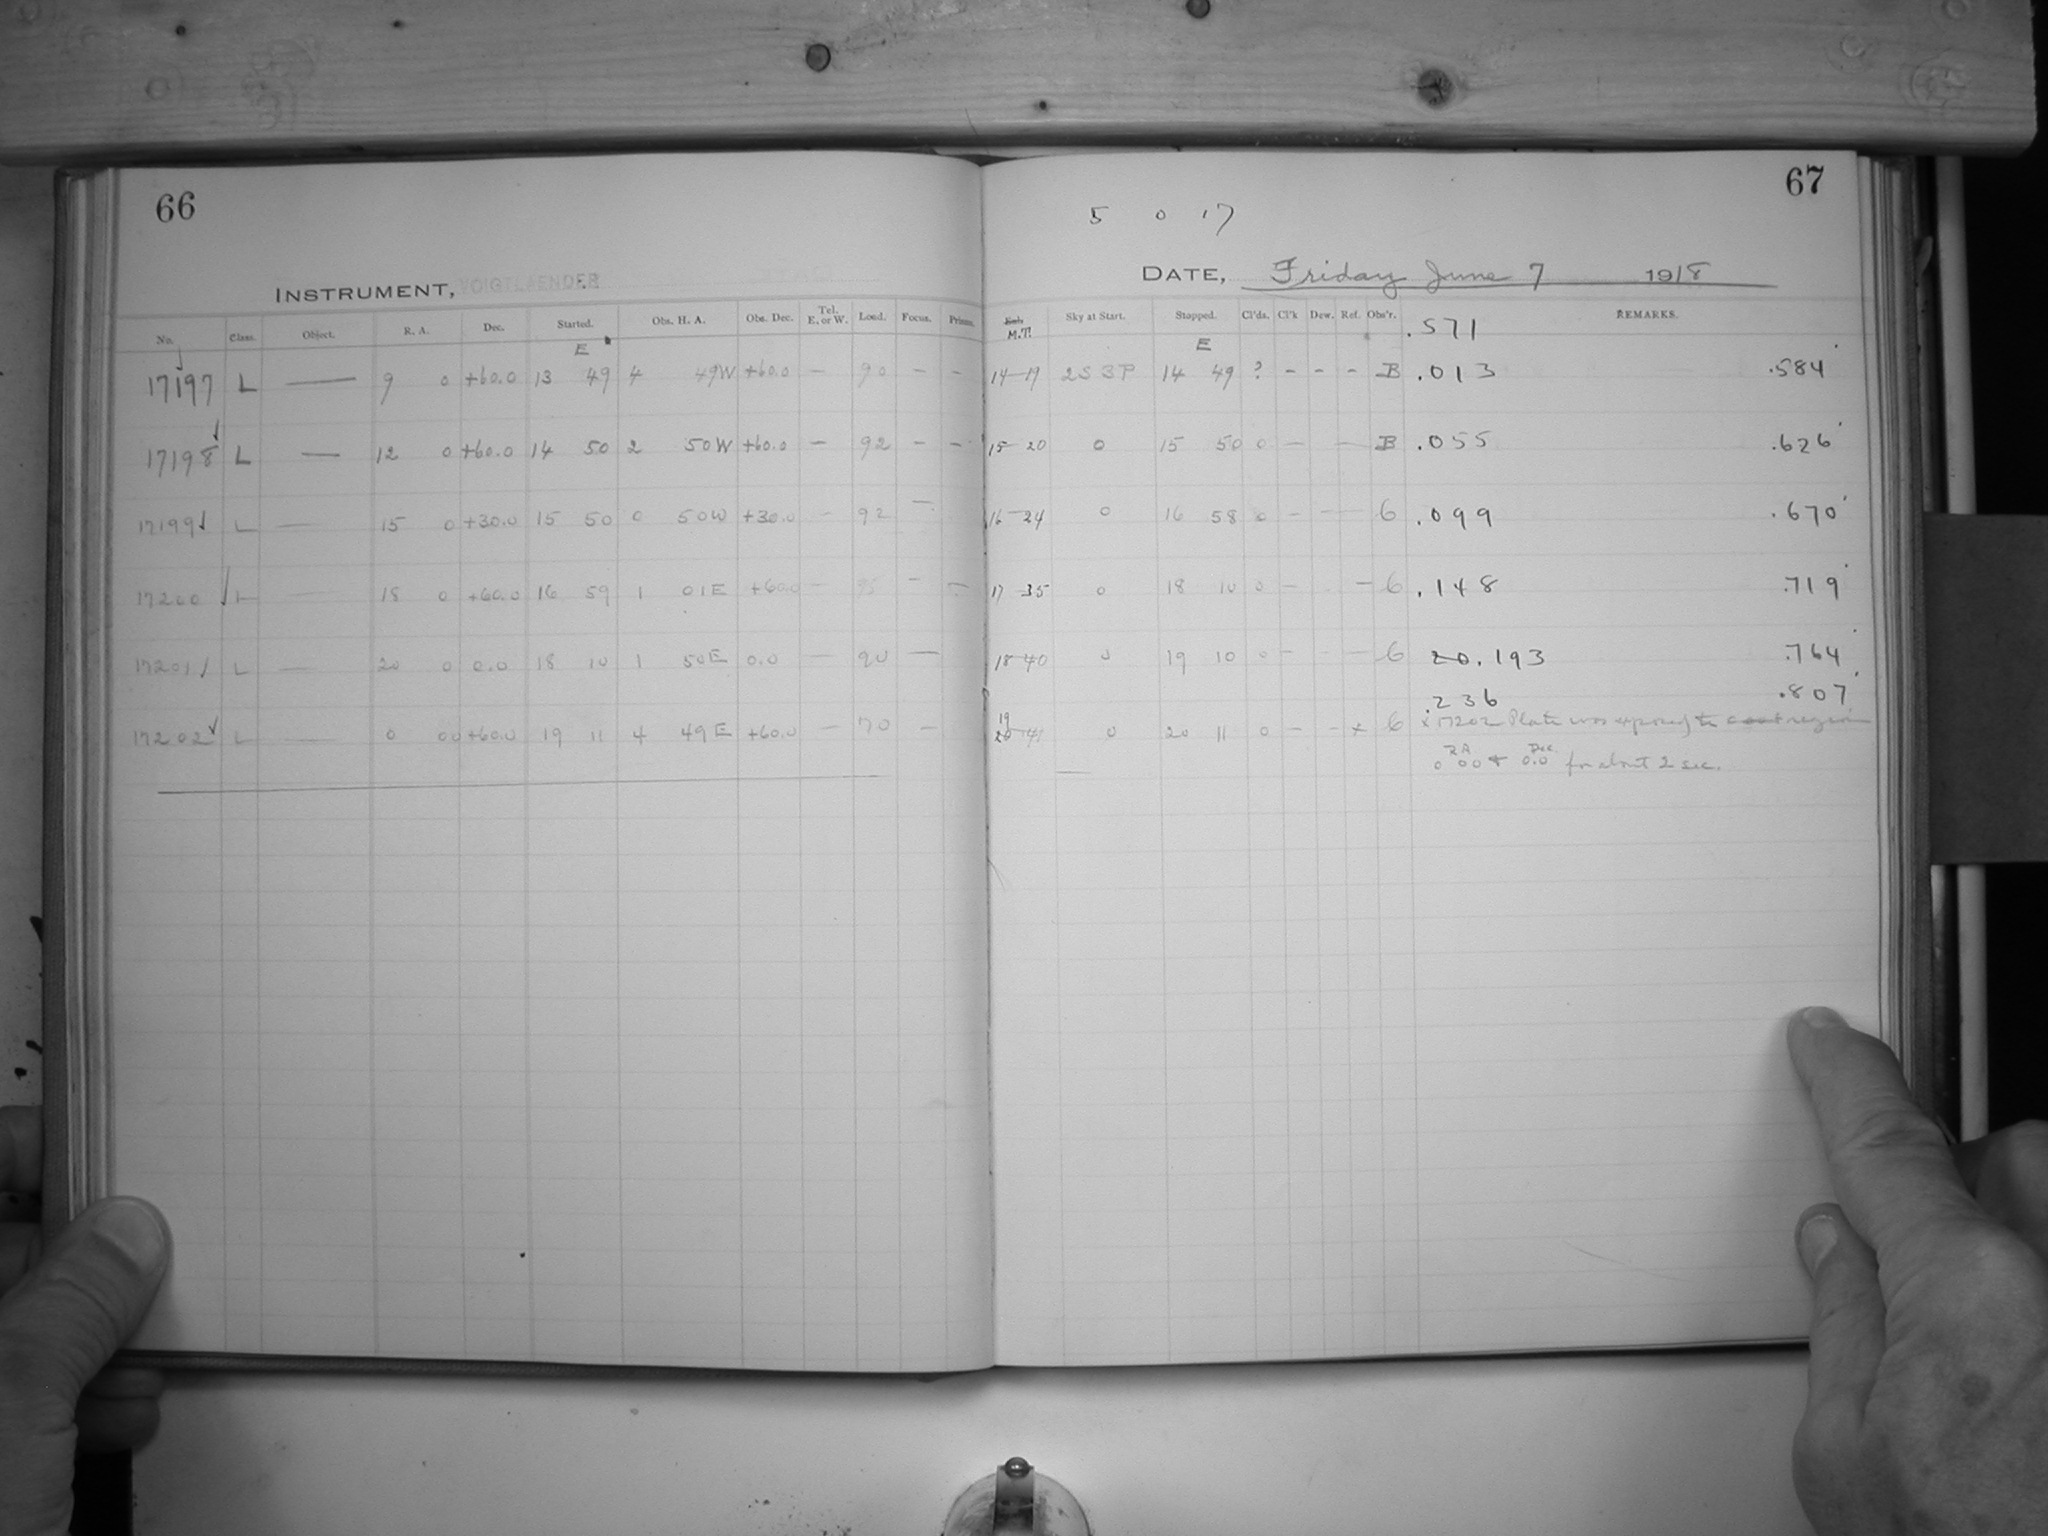 66
INSTRUMENT, VOIGTLAENDER
No. Class. Object. R. A. Dec. Started. Obs. H. A. Obs. Dec. Tel. E. or W. Load. Focus. Prisms.
E
17197 L — 9 0 +60.0 13 49 4 49W +60.0 — 90 — —
17198 L — 12 0 +60.0 14 50 2 50W +60.0 — 92 — —
17199 L — 15 0 +30.0 15 50 0 50W +30.0 — 92 —
17200 L — 18 0 +60.0 16 59 1 01E +60.0 — 95 — —
17201 L — 20 0 0.0 18 10 1 50E 0.0 — 90 —
17202 L — 0 00 +60.0 19 11 4 49E +60.0 — 70 —
67
5 0 17
DATE, Friday June 7 1918
M.T. Sky at Start. Stopped. Cl'ds. Cl'k Dew. Ref. Obs'r. REMARKS.
E .571
14-19 2S3P 14 49 ? - - - B .013 .584
15-20 0 15 50 0 — — B .055 .626
16-24 0 16 58 0 - — 6 .099 .670
17-35 0 18 10 0 - — 6 .148 .719
18-40 0 19 10 0 - - — 6 20.193 .764
.236 .807
19
20-41 0 20 11 0 - - x 6 x 17202 Plate was exposed to region
RA Dec.
0 00 + 0.0 for about 2 sec.